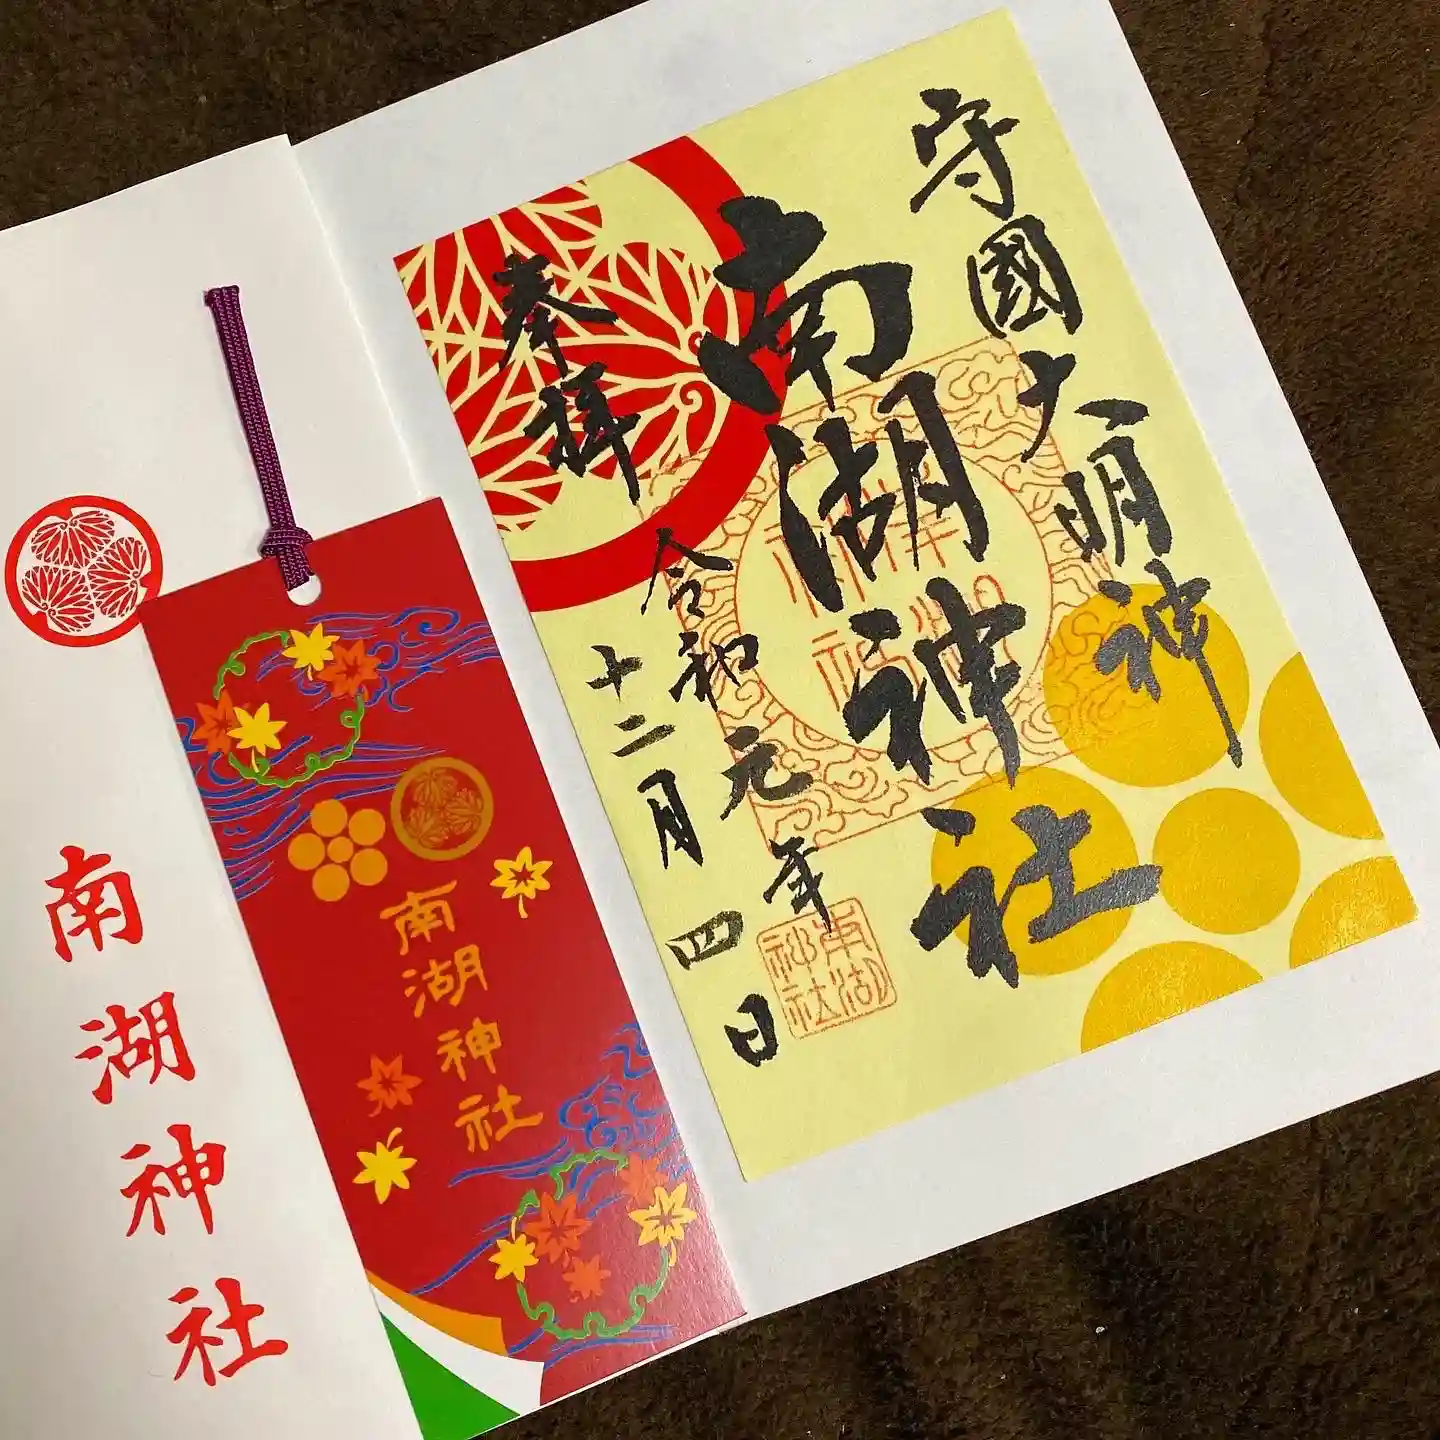 守國大明神
南湖神社
奉拝
令和元年
十二月四日
南湖
神社
南湖神社
南湖神社